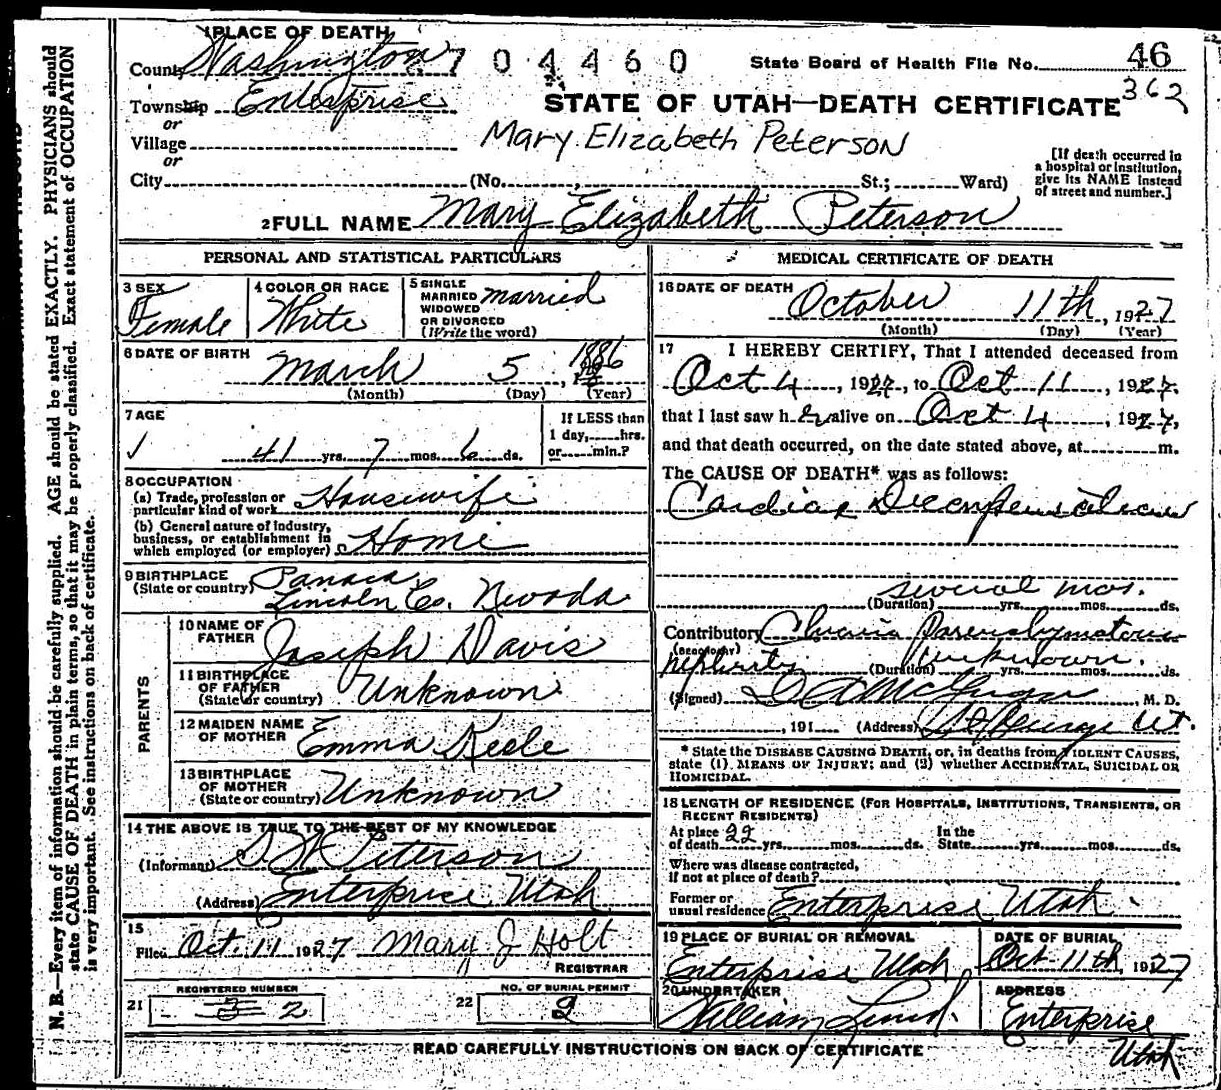 1 PLACE OF DEATH
County Washington 2704460 State Board of Health File No. 46
Township Enterprise STATE OF UTAH—DEATH CERTIFICATE 362
or
Village Mary Elizabeth Peterson
or
City (No. , St.; Ward)
[If death occurred in
a hospital or institution,
give its NAME instead
of street and number.]
2 FULL NAME Mary Elizabeth Peterson
PERSONAL AND STATISTICAL PARTICULARS
3 SEX
Female
4 COLOR OR RACE
White
5 SINGLE
MARRIED
WIDOWED
OR DIVORCED
(Write the word)
married
6 DATE OF BIRTH
March 5, 1886
(Month) (Day) (Year)
7 AGE
41 yrs. 7 mos. 6 ds.
If LESS than
1 day, hrs.
or min.?
8 OCCUPATION
(a) Trade, profession or
particular kind of work Housewife
(b) General nature of industry,
business, or establishment in
which employed (or employer) Home
9 BIRTHPLACE
(State or country) Panaca
Lincoln Co. Nevada
PARENTS
10 NAME OF
FATHER Joseph Davis
11 BIRTHPLACE
OF FATHER
(State or country) Unknown
12 MAIDEN NAME
OF MOTHER Emma Keele
13 BIRTHPLACE
OF MOTHER
(State or country) Unknown
14 THE ABOVE IS TRUE TO THE BEST OF MY KNOWLEDGE
(Informant) Peterson
(Address) Enterprise Utah
15
Filed Oct. 11 1927 Mary J Holt
REGISTRAR
21 REGISTERED NUMBER
3 2
22 NO. OF BURIAL PERMIT
2
MEDICAL CERTIFICATE OF DEATH
16 DATE OF DEATH
October 11th, 1927
(Month) (Day) (Year)
17 I HEREBY CERTIFY, That I attended deceased from
Oct 4, 1927, to Oct 11, 1927.
that I last saw her alive on Oct 4, 1927,
and that death occurred, on the date stated above, at m.
The CAUSE OF DEATH* was as follows:
Cardiac Decompensation
several mos.
(Duration) yrs. mos. ds.
Contributory Chronic Parenchymatous
(Secondary)
nephritis (Duration) unknown. yrs. mos. ds.
(Signed) D A McGregor, M. D.
, 191 (Address) St George Ut.
* State the DISEASE CAUSING DEATH, or, in deaths from VIOLENT CAUSES,
state (1) MEANS OF INJURY; and (2) whether ACCIDENTAL, SUICIDAL OR
HOMICIDAL.
18 LENGTH OF RESIDENCE (FOR HOSPITALS, INSTITUTIONS, TRANSIENTS, OR
RECENT RESIDENTS)
At place
of death 22 yrs. mos. ds. In the
State yrs. mos. ds.
Where was disease contracted,
if not at place of death?
Former or
usual residence Enterprise Utah.
19 PLACE OF BURIAL OR REMOVAL
Enterprise Utah
DATE OF BURIAL
Oct 11th, 1927
20 UNDERTAKER
William Lund.
ADDRESS
Enterprise
Utah
READ CAREFULLY INSTRUCTIONS ON BACK OF CERTIFICATE
N. B.—Every item of information should be carefully supplied. AGE should be stated EXACTLY. PHYSICIANS should
state CAUSE OF DEATH in plain terms, so that it may be properly classified. Exact statement of OCCUPATION
is very important. See instructions on back of certificate.